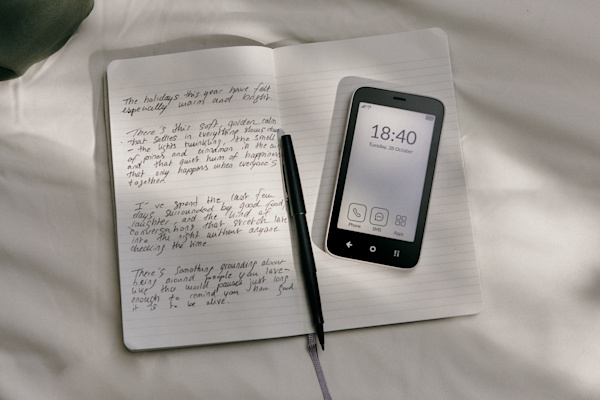 The holidays this year have felt
especially warm and bright.
There's this soft, golden calm
that settles in everything slows down
- the lights twinkling, the smell
of pines and cinnamon in the air
and that quiet hum of happiness
that only happens when everyone's
together.
I've spend the last few
days surrounded by good food,
laughter and the kind of
conversations that stretch late
into the night without anyone
checking the time.
There's something grounding about
being around people you love-
like the world pauses just long
enough to remind you how good
it is to be alive.
18:40
Tuesday, 28 October
Phone
SMS
Apps